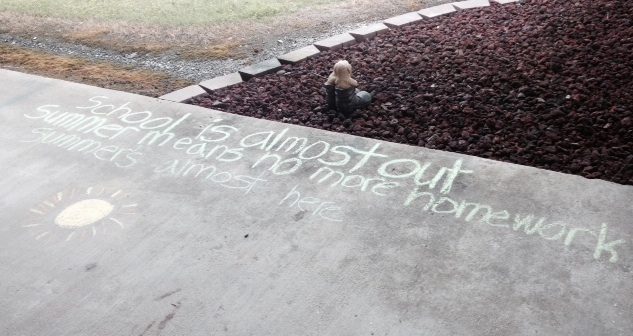 School is almost out
Summer means no more homework
Summers almost here